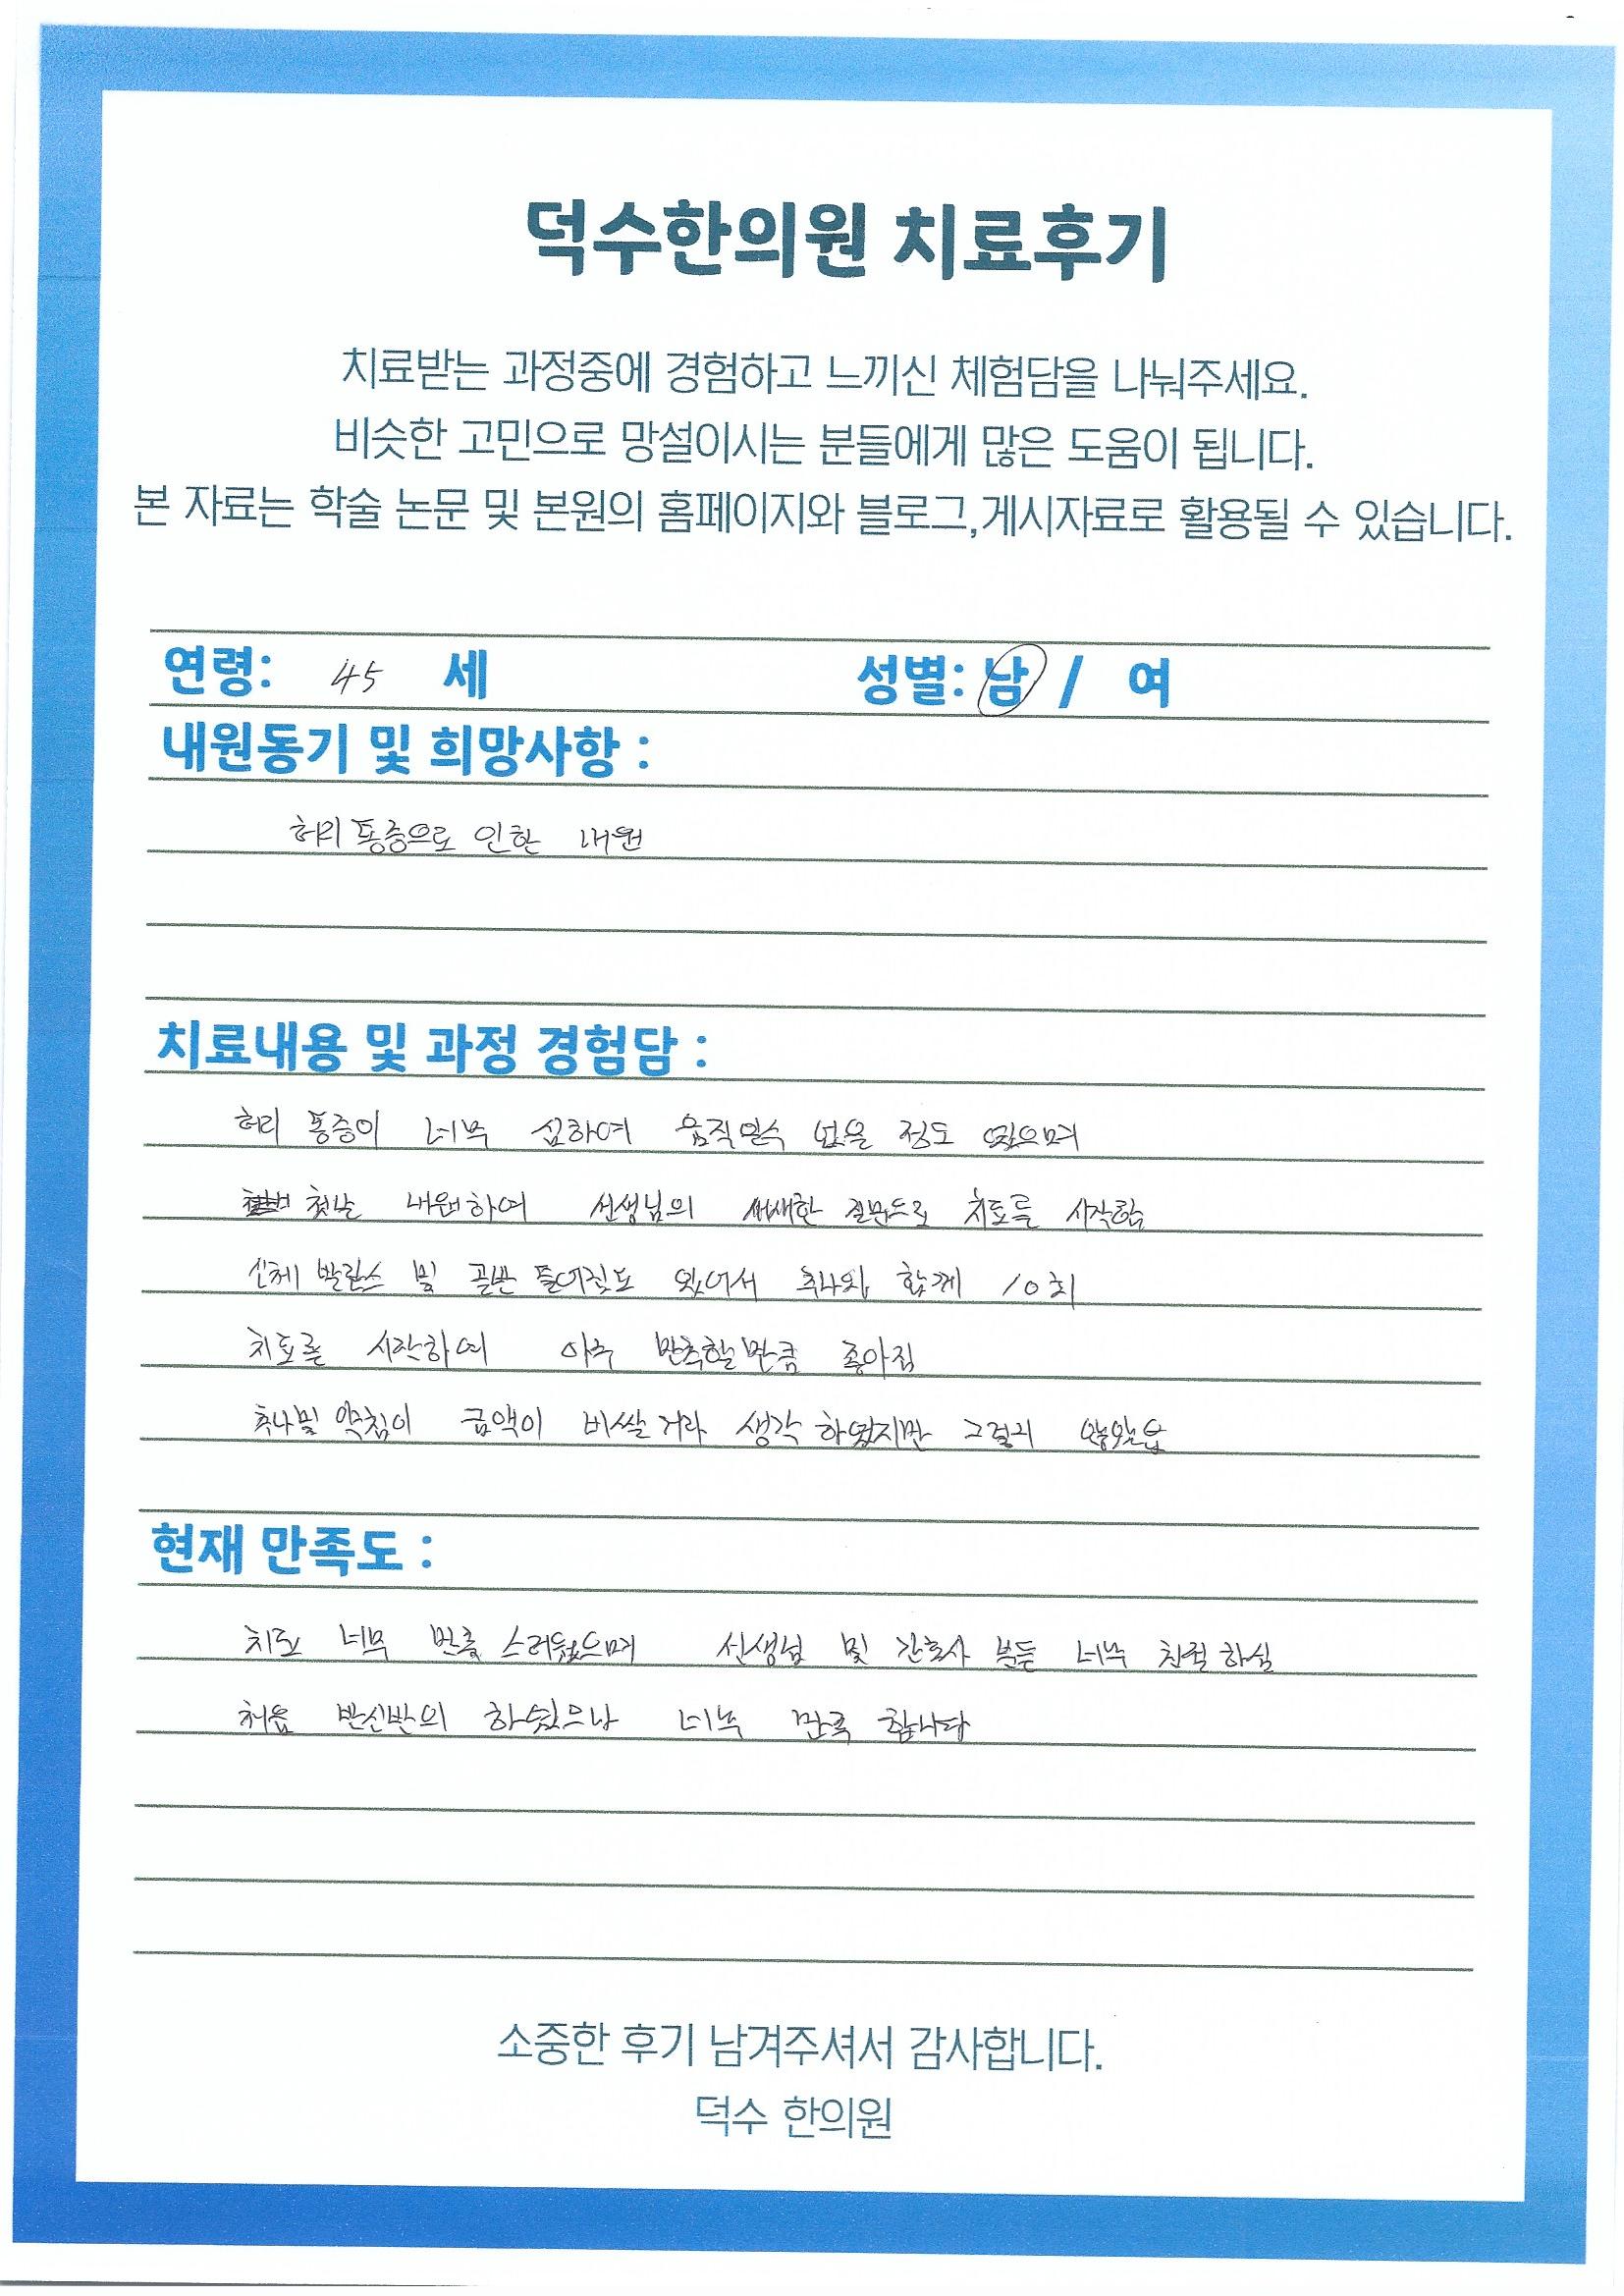 덕수한의원 치료후기
치료받는 과정중에 경험하고 느끼신 체험담을 나눠주세요.
비슷한 고민으로 망설이시는 분들에게 많은 도움이 됩니다.
본 자료는 학술 논문 및 본원의 홈페이지와 블로그,게시자료로 활용될 수 있습니다.
연령: 45 세 성별: 남 / 여
내원동기 및 희망사항 :
허리 통증으로 인한 내원
치료내용 및 과정 경험담 :
허리 통증이 너무 심하여 움직일수 없을 정도 였으며
첫날 내원하여 선생님의 세세한 질문으로 치료를 시작함
신체 발란스 및 골반 틀어짐도 있어서 추나와 함께 10회
치료를 시작하여 아주 만족할만큼 좋아짐
추나및 약침이 금액이 비쌀거라 생각 하였지만 그렇지 않았음
현재 만족도 :
치료 너무 만족 스러웠으며 선생님 및 간호사 분들 너무 친절 하심
처음 반신반의 하였으나 너무 만족 합니다
소중한 후기 남겨주셔서 감사합니다.
덕수 한의원